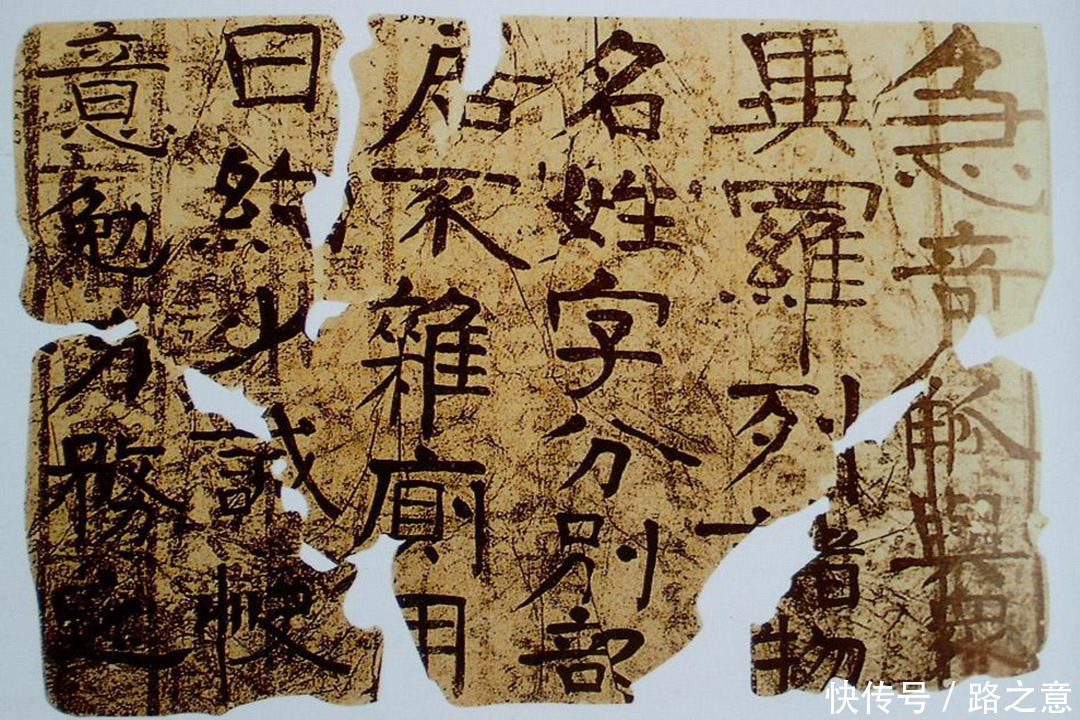 急奇觚與眾
異羅列諸物
名姓字分別部
居不雜廁用
日約少誠快
意勉力務
快传号 / 路之意